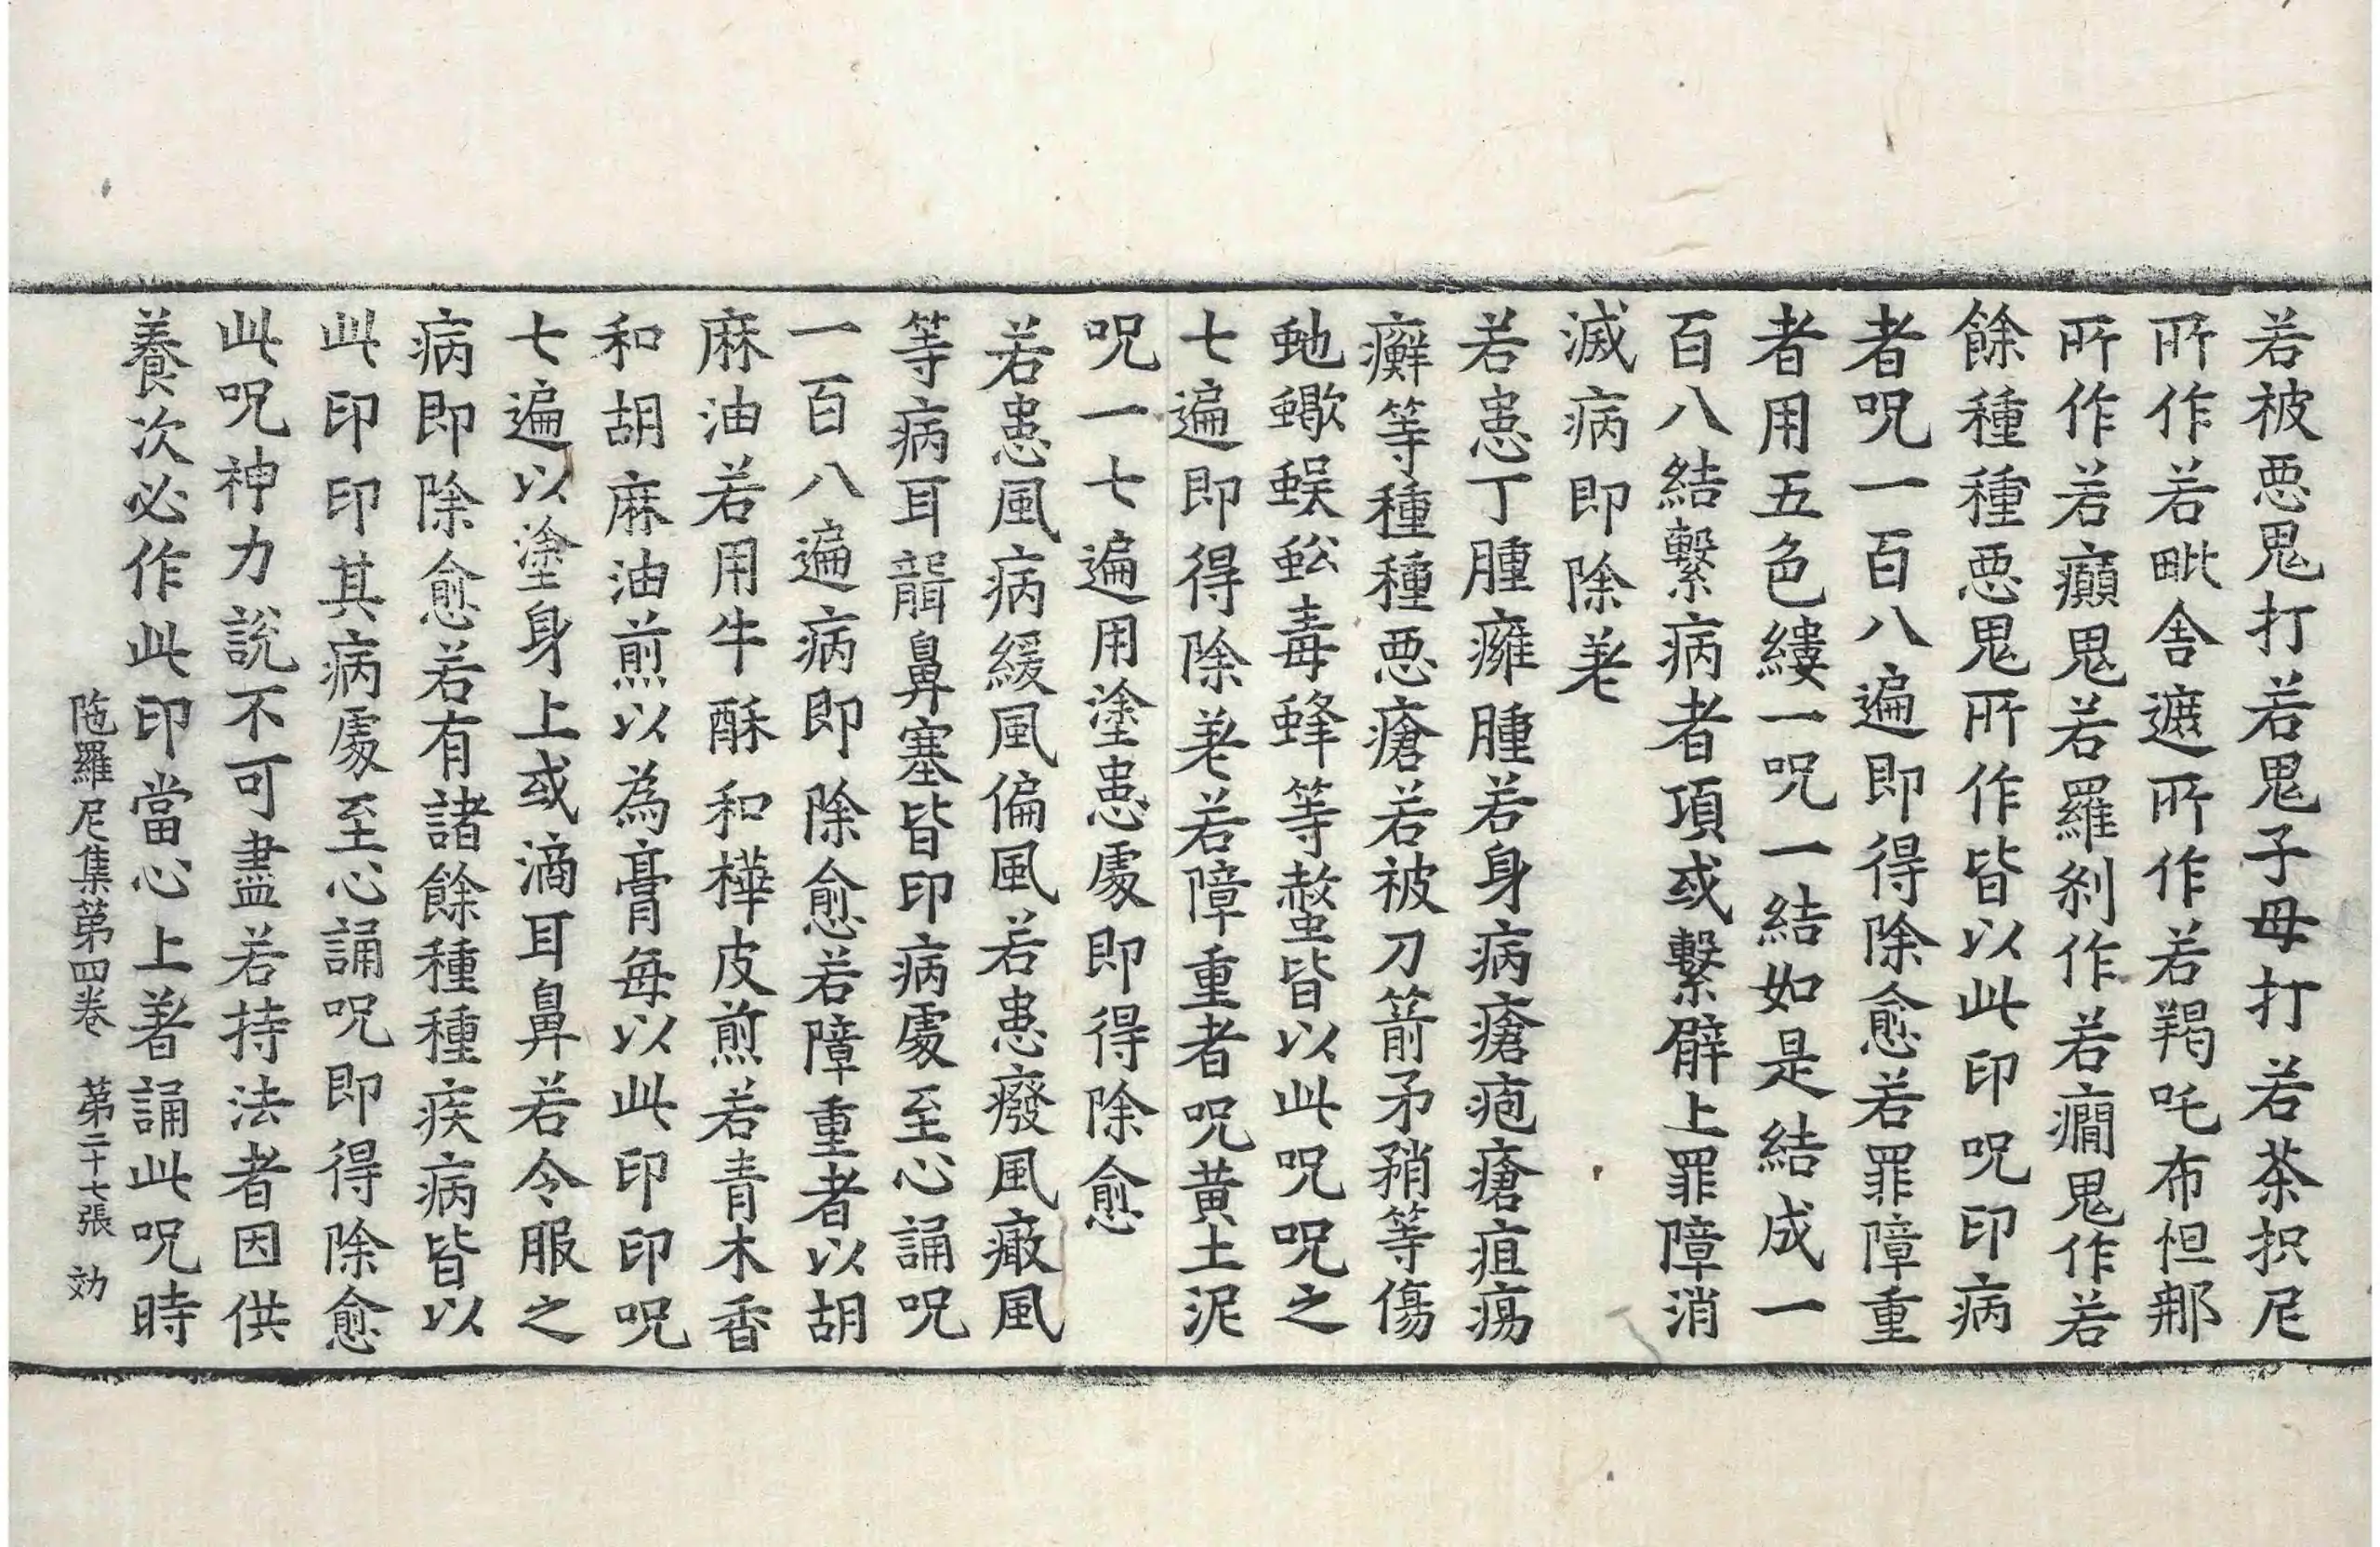 若被悪鬼打若鬼子母打若茶抧尼
所作若毗舎遮所作若羯吒布怛那
所作若癲鬼若羅刹作若癎鬼作若
餘種種悪鬼所作皆以此印呪印病
者呪一百八遍即得除愈若罪障重
者用五色縷一呪一結如是結成一
百八結繫病者項或繫臂上罪障消
滅病即除差
若患丁腫癰腫若身病瘡疱瘡疽瘍
癬等種種悪瘡若被刀箭矛矟等傷
虵蠍蜈蚣毒蜂等螫皆以此呪呪之
七遍即得除差若障重者呪黄土泥
呪一七遍用塗患處即得除愈
若患風病緩風偏風若患癈風㿏風
等病耳聾鼻塞皆印病處至心誦呪
一百八遍病即除愈若障重者以胡
麻油若用牛酥和樺皮煎若青木香
和胡麻油煎以為膏每以此印印呪
七遍以塗身上或滴耳鼻若令服之
病即除愈若有諸餘種種疾病皆以
此印印其病處至心誦呪即得除愈
此呪神力說不可盡若持法者因供
養次必作此印當心上著誦此呪時
陁羅尼集第四卷 第二十七張 効